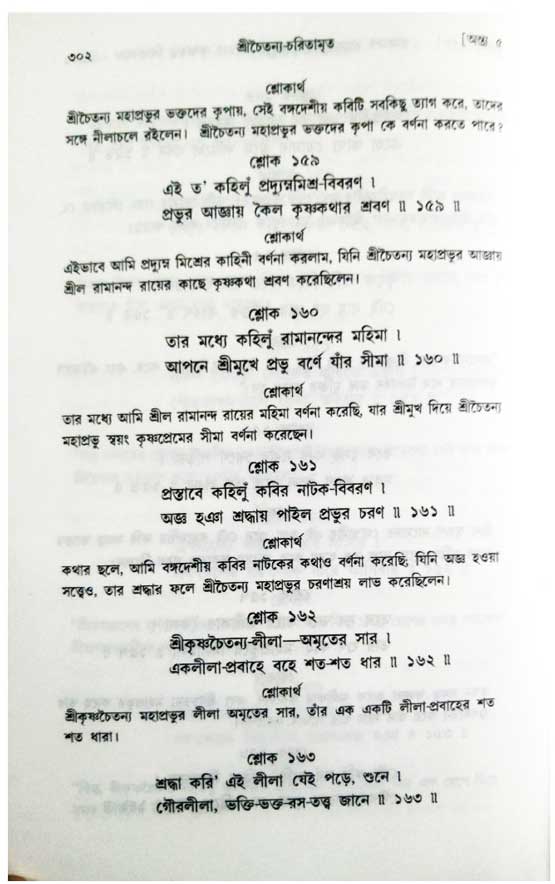 ৩০২ শ্রীচৈতন্য-চরিতামৃত [অন্ত্য ৫
শ্লোকার্থ
শ্রীচৈতন্য মহাপ্রভুর ভক্তদের কৃপায়, সেই বঙ্গদেশীয় কবিটি সবকিছু ত্যাগ করে, তাদের
সঙ্গে নীলাচলে রইলেন। শ্রীচৈতন্য মহাপ্রভুর ভক্তদের কৃপা কে বর্ণনা করতে পারে?
শ্লোক ১৫৯
এই ত' কহিলুঁ প্রদ্যুম্নমিশ্র-বিবরণ ।
প্রভুর আজ্ঞায় কৈল কৃষ্ণকথার শ্রবণ ॥ ১৫৯ ॥
শ্লোকার্থ
এইভাবে আমি প্রদ্যুম্ন মিশ্রের কাহিনী বর্ণনা করলাম, যিনি শ্রীচৈতন্য মহাপ্রভুর আজ্ঞায়
শ্রীল রামানন্দ রায়ের কাছে কৃষ্ণকথা শ্রবণ করেছিলেন।
শ্লোক ১৬০
তার মধ্যে কহিলুঁ রামানন্দের মহিমা ।
আপনে শ্রীমুখে প্রভু বর্ণে যাঁর সীমা ॥ ১৬০ ॥
শ্লোকার্থ
তার মধ্যে আমি শ্রীল রামানন্দ রায়ের মহিমা বর্ণনা করেছি, যার শ্রীমুখ দিয়ে শ্রীচৈতন্য
মহাপ্রভু স্বয়ং কৃষ্ণপ্রেমের সীমা বর্ণনা করেছেন।
শ্লোক ১৬১
প্রস্তাবে কহিলুঁ কবির নাটক-বিবরণ ।
অজ্ঞ হঞা শ্রদ্ধায় পাইল প্রভুর চরণ ॥ ১৬১ ॥
শ্লোকার্থ
কথার ছলে, আমি বঙ্গদেশীয় কবির নাটকের কথাও বর্ণনা করেছি, যিনি অজ্ঞ হওয়া
সত্ত্বেও, তার শ্রদ্ধার ফলে শ্রীচৈতন্য মহাপ্রভুর চরণাশ্রয় লাভ করেছিলেন।
শ্লোক ১৬২
শ্রীকৃষ্ণচৈতন্য-লীলা—অমৃতের সার ।
একলীলা-প্রবাহে বহে শত-শত ধার ॥ ১৬২ ॥
শ্লোকার্থ
শ্রীকৃষ্ণচৈতন্য মহাপ্রভুর লীলা অমৃতের সার, তাঁর এক একটি লীলা-প্রবাহের শত
শত ধারা।
শ্লোক ১৬৩
শ্রদ্ধা করি' এই লীলা যেই পড়ে, শুনে ।
গৌরলীলা, ভক্তি-ভক্ত-রস-তত্ত্ব জানে ॥ ১৬৩ ॥